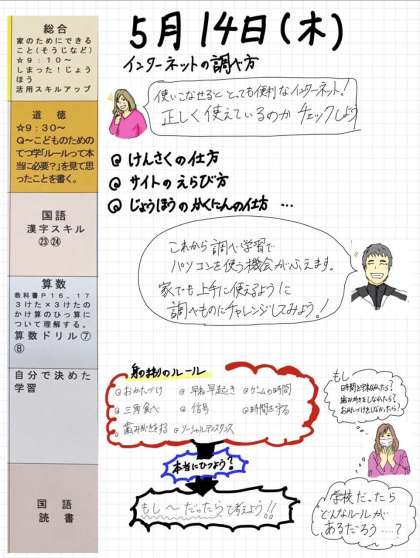 総合
家のためにできる
こと(そうじなど)
☆9:10~
しまった!じょう
ほう
活用スキルアップ
道徳
☆9:30~
Q~こどものための
てつ学「ルールって本
当に必要?」を見て思
ったことを書く。
国語
漢字スキル
㉓㉔
算数
教科書P16、17
3けた×3けたの
かけ算のひっ算に
ついて理解する。
算数ドリル⑦
⑧
自分で決めた
学習
国語
読書
5月14日(木)
インターネットの調べ方
使いこなせるととっても便利なインターネット!
正しく使えているのかチェックしよう
@ けんさくの仕方
@ サイトのえらび方
@ じょうほうのかくにんの仕方 …
これから調べ学習で
パソコンを使う機会がふえます。
家でも上手に使えるように
調べものにチャレンジしてみよう!
身の周りのルール
@おかたづけ @早ね早起き @ゲームの時間
@三角食べ @信号 @時間を守る
@歯みがきをする @ソーシャルディスタンス
本当にひつよう?
もし~だったらで考えよう!!
もし
時間を守らなかったら?
歯みがきをしなかったら?
おかたづけをしなかったら?
学校だったら
どんなルールが
あるだろう……?